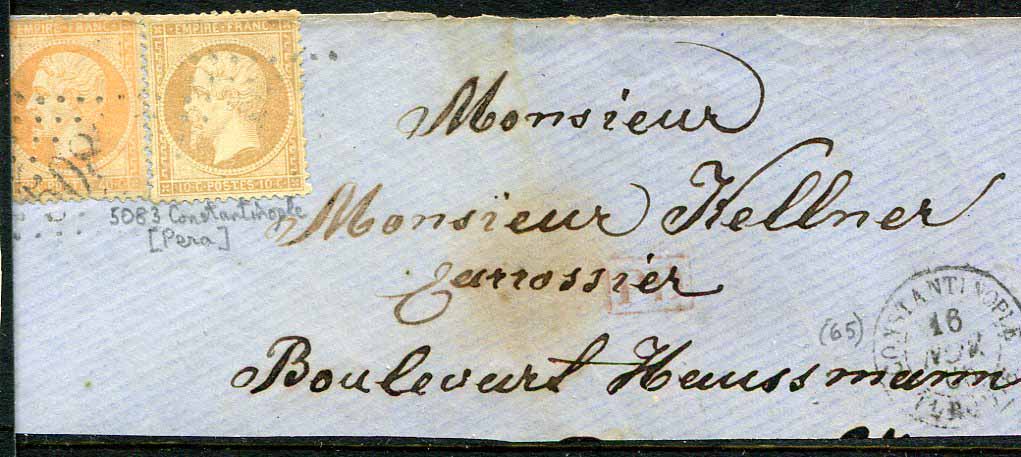 EMPIRE FRANC
EMPIRE·FRANC
10·C·POSTES·10·C
508
5083 Constantinople
[Pera]
Monsieur
Monsieur Kellner
Carrossier
P.D.
Boulevart Haussmann
(65)
CONSTANTINOPLE
16
NOV.